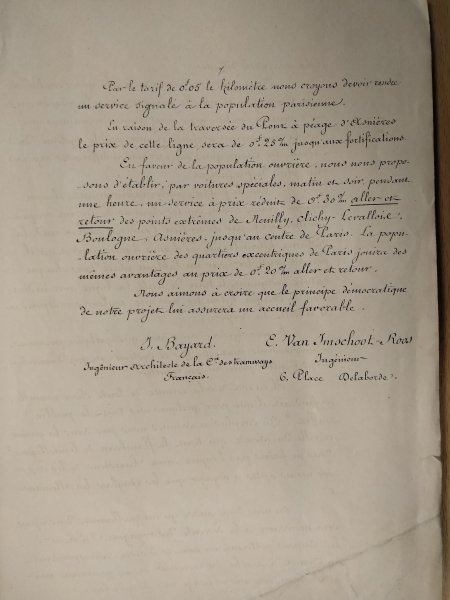 7
Par le tarif de 0f.05 le kilomètre nous croyons devoir rendre
un service signalé à la population parisienne.
En raison de la traversée du Pont à péage d'Asnières
le prix de cette ligne sera de 0f.25 c/m jusqu'aux fortifications.
En faveur de la population ouvrière, nous nous propo-
sons d'établir, par voitures spéciales, matin et soir, pendant
une heure, un service à prix réduit de 0f.30 c/m aller et
retour des points extrêmes de Neuilly, Clichy Levallois,
Boulogne, Asnières, jusqu'au centre de Paris. La popu-
lation ouvrière des quartiers excentriques de Paris jouira des
mêmes avantages au prix de 0f.20 c/m aller et retour.
Nous aimons à croire que le principe démocratique
de notre projet lui assurera un accueil favorable.
J. Bayard. E. Van Imschoot-Roos
Ingénieur Architecte de la Cie des tramways Ingénieur
Français. 6. Place Delaborde.